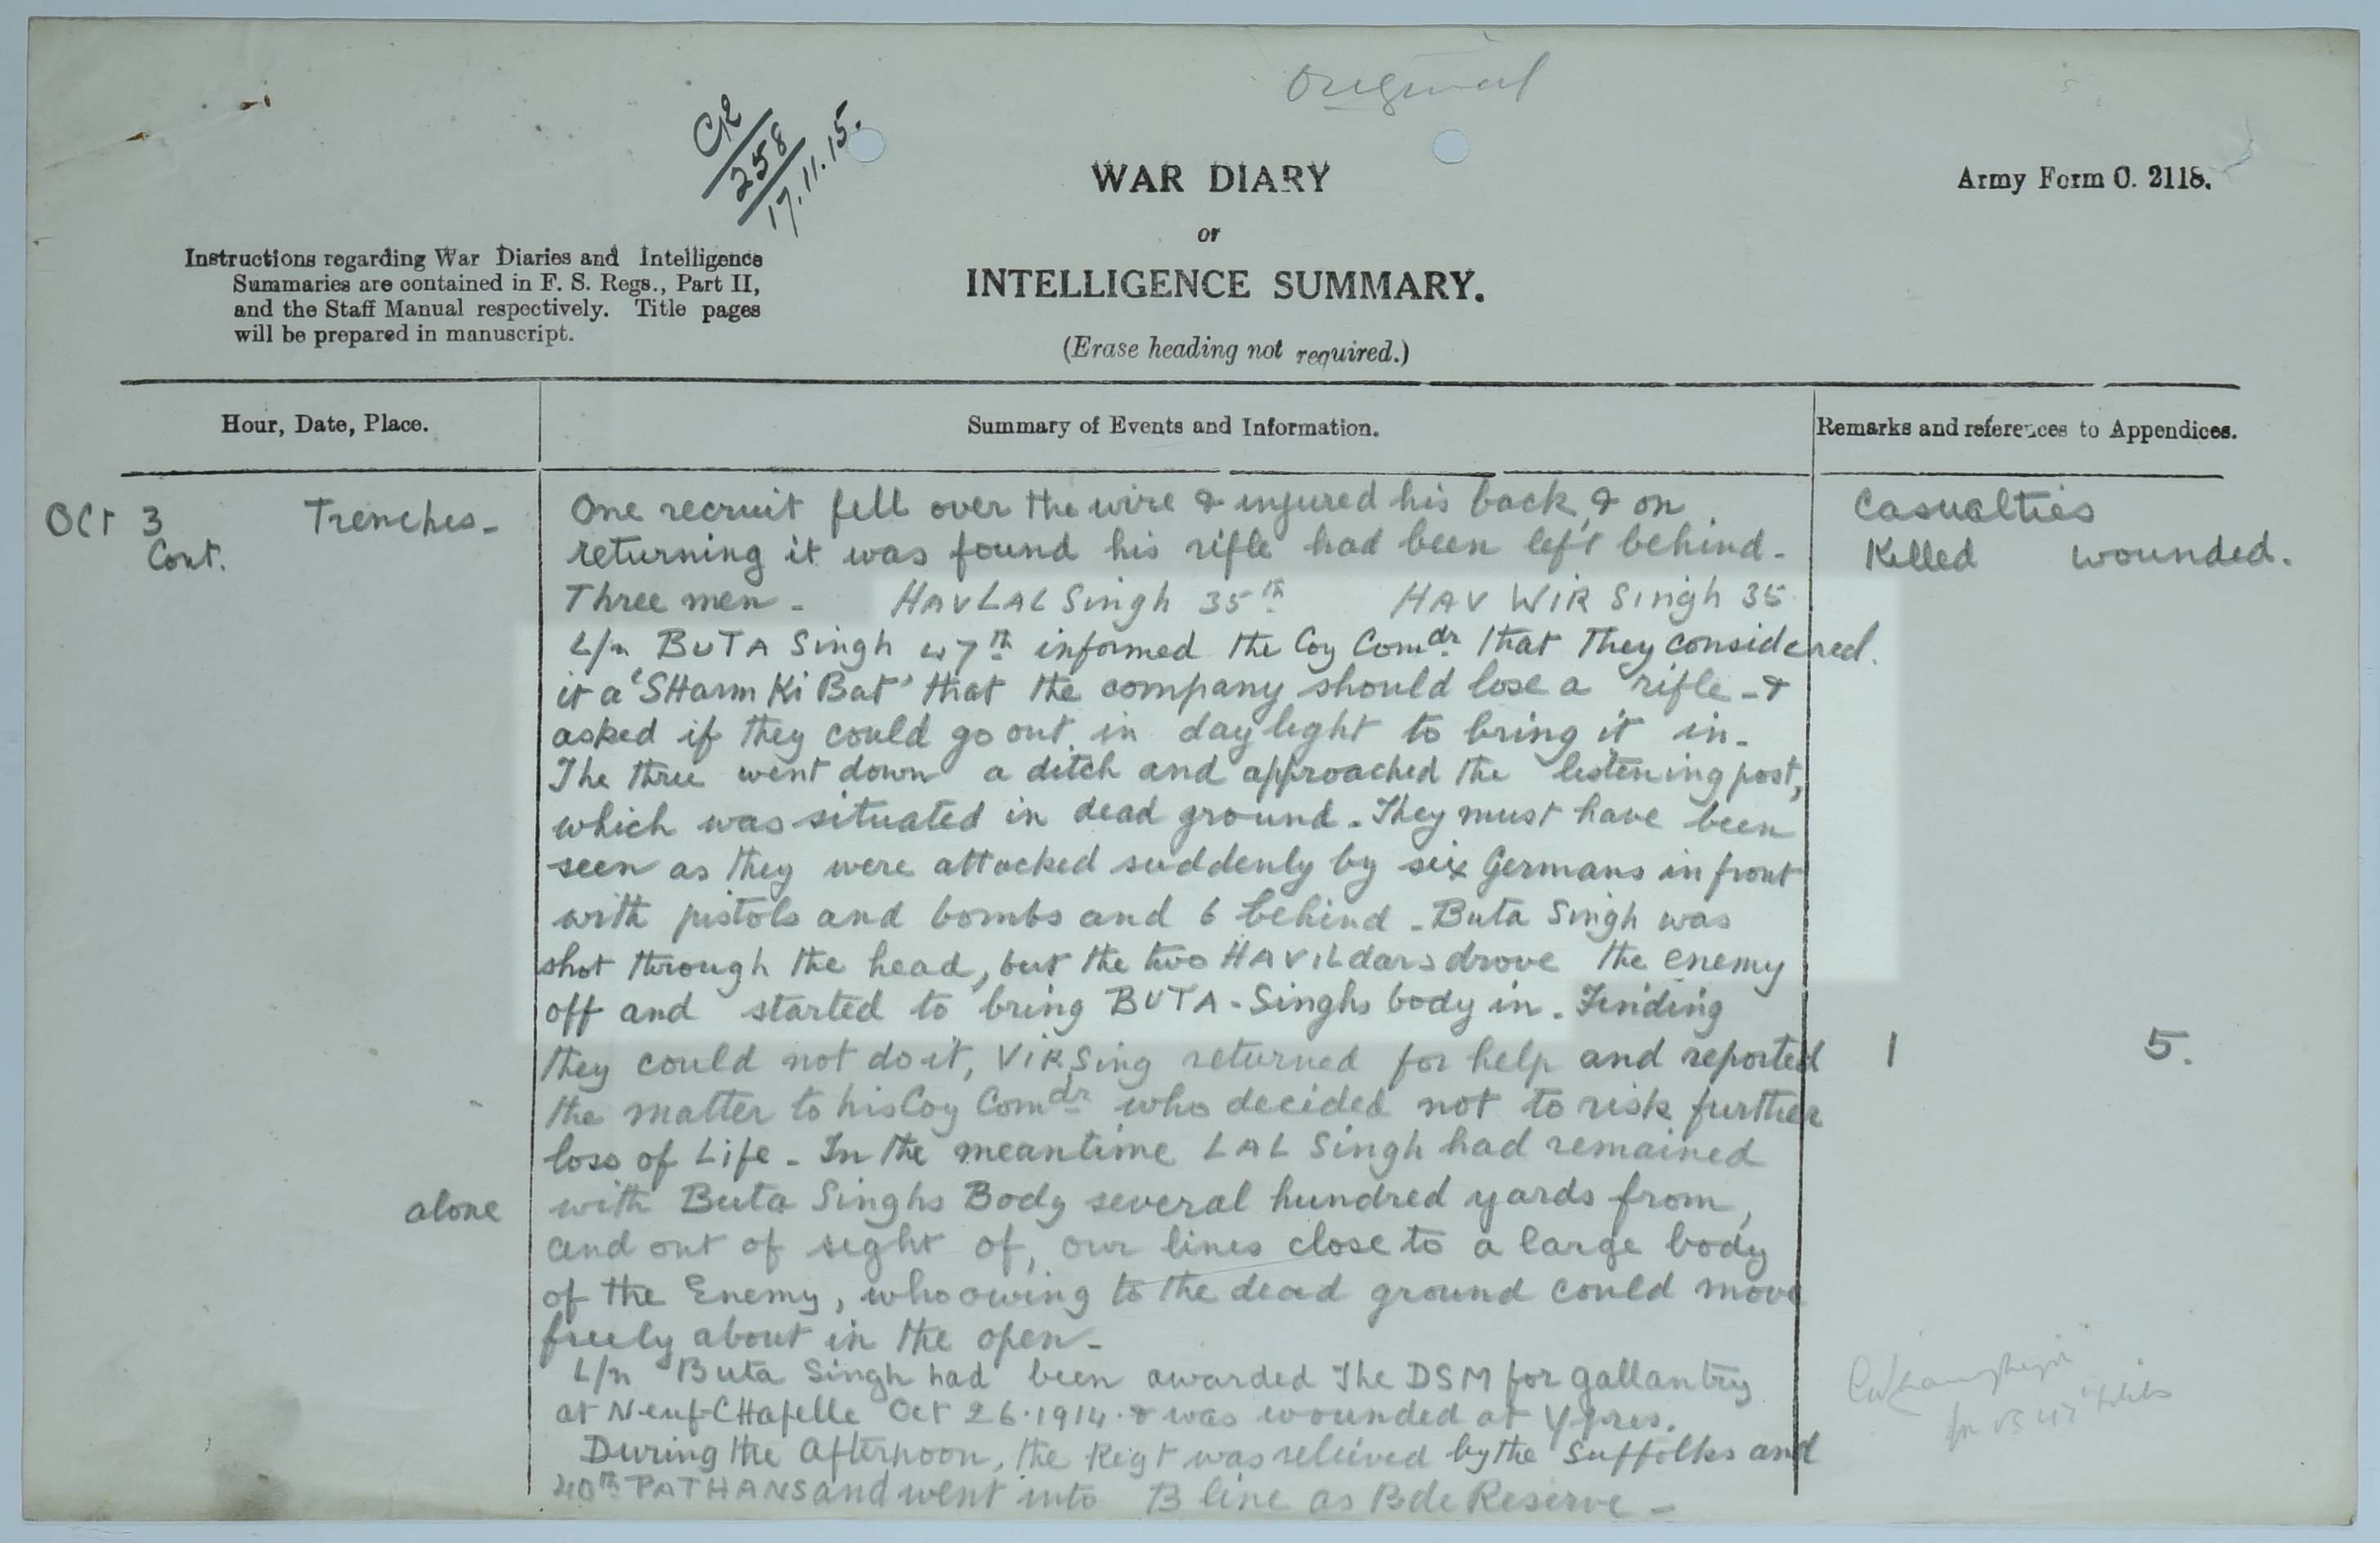 Original
G2
258
17.11.15.
WAR DIARY
or
INTELLIGENCE SUMMARY.
(Erase heading not required.)
Army Form C. 2118.
Instructions regarding War Diaries and Intelligence
Summaries are contained in F. S. Regs., Part II,
and the Staff Manual respectively. Title pages
will be prepared in manuscript.
Hour, Date, Place.
Summary of Events and Information.
Remarks and references to Appendices.
Oct 3 Trenches-
Cont.
One recruit fell over the wire & injured his back, & on
returning it was found his rifle had been left behind-
Three men- HAV LAL Singh 35th HAV WIR Singh 35
L/n BUTA Singh 47th informed the Coy Comdr that they considered
it a 'SHarm Ki Bat' that the company should lose a rifle-&
asked if they could go out in daylight to bring it in-
The three went down a ditch and approached the listening post,
which was situated in dead ground. They must have been
seen as they were attacked suddenly by six Germans in front
with pistols and bombs and 6 behind-Buta Singh was
shot through the head, but the two HAVILdars drove the enemy
off and started to bring BUTA-Singhs body in. Finding
they could not do it, VIR Sing returned for help and reported
the matter to his Coy Comdr who decided not to risk further
loss of Life- In the meantime LAL Singh had remained
alone with Buta Singhs Body several hundred yards from,
and out of sight of, our lines close to a large body
of the Enemy, who owing to the dead ground could move
freely about in the open-
L/n Buta Singh had been awarded The DSM for gallantry
at Neuf-CHapelle Oct 26.1914.& was wounded at Ypres.
During the Afternoon, the Regt was relieved by the Suffolks and
40th PATHANS and went into B line as Bde Reserve-
Casualties
Killed wounded.
1 5.